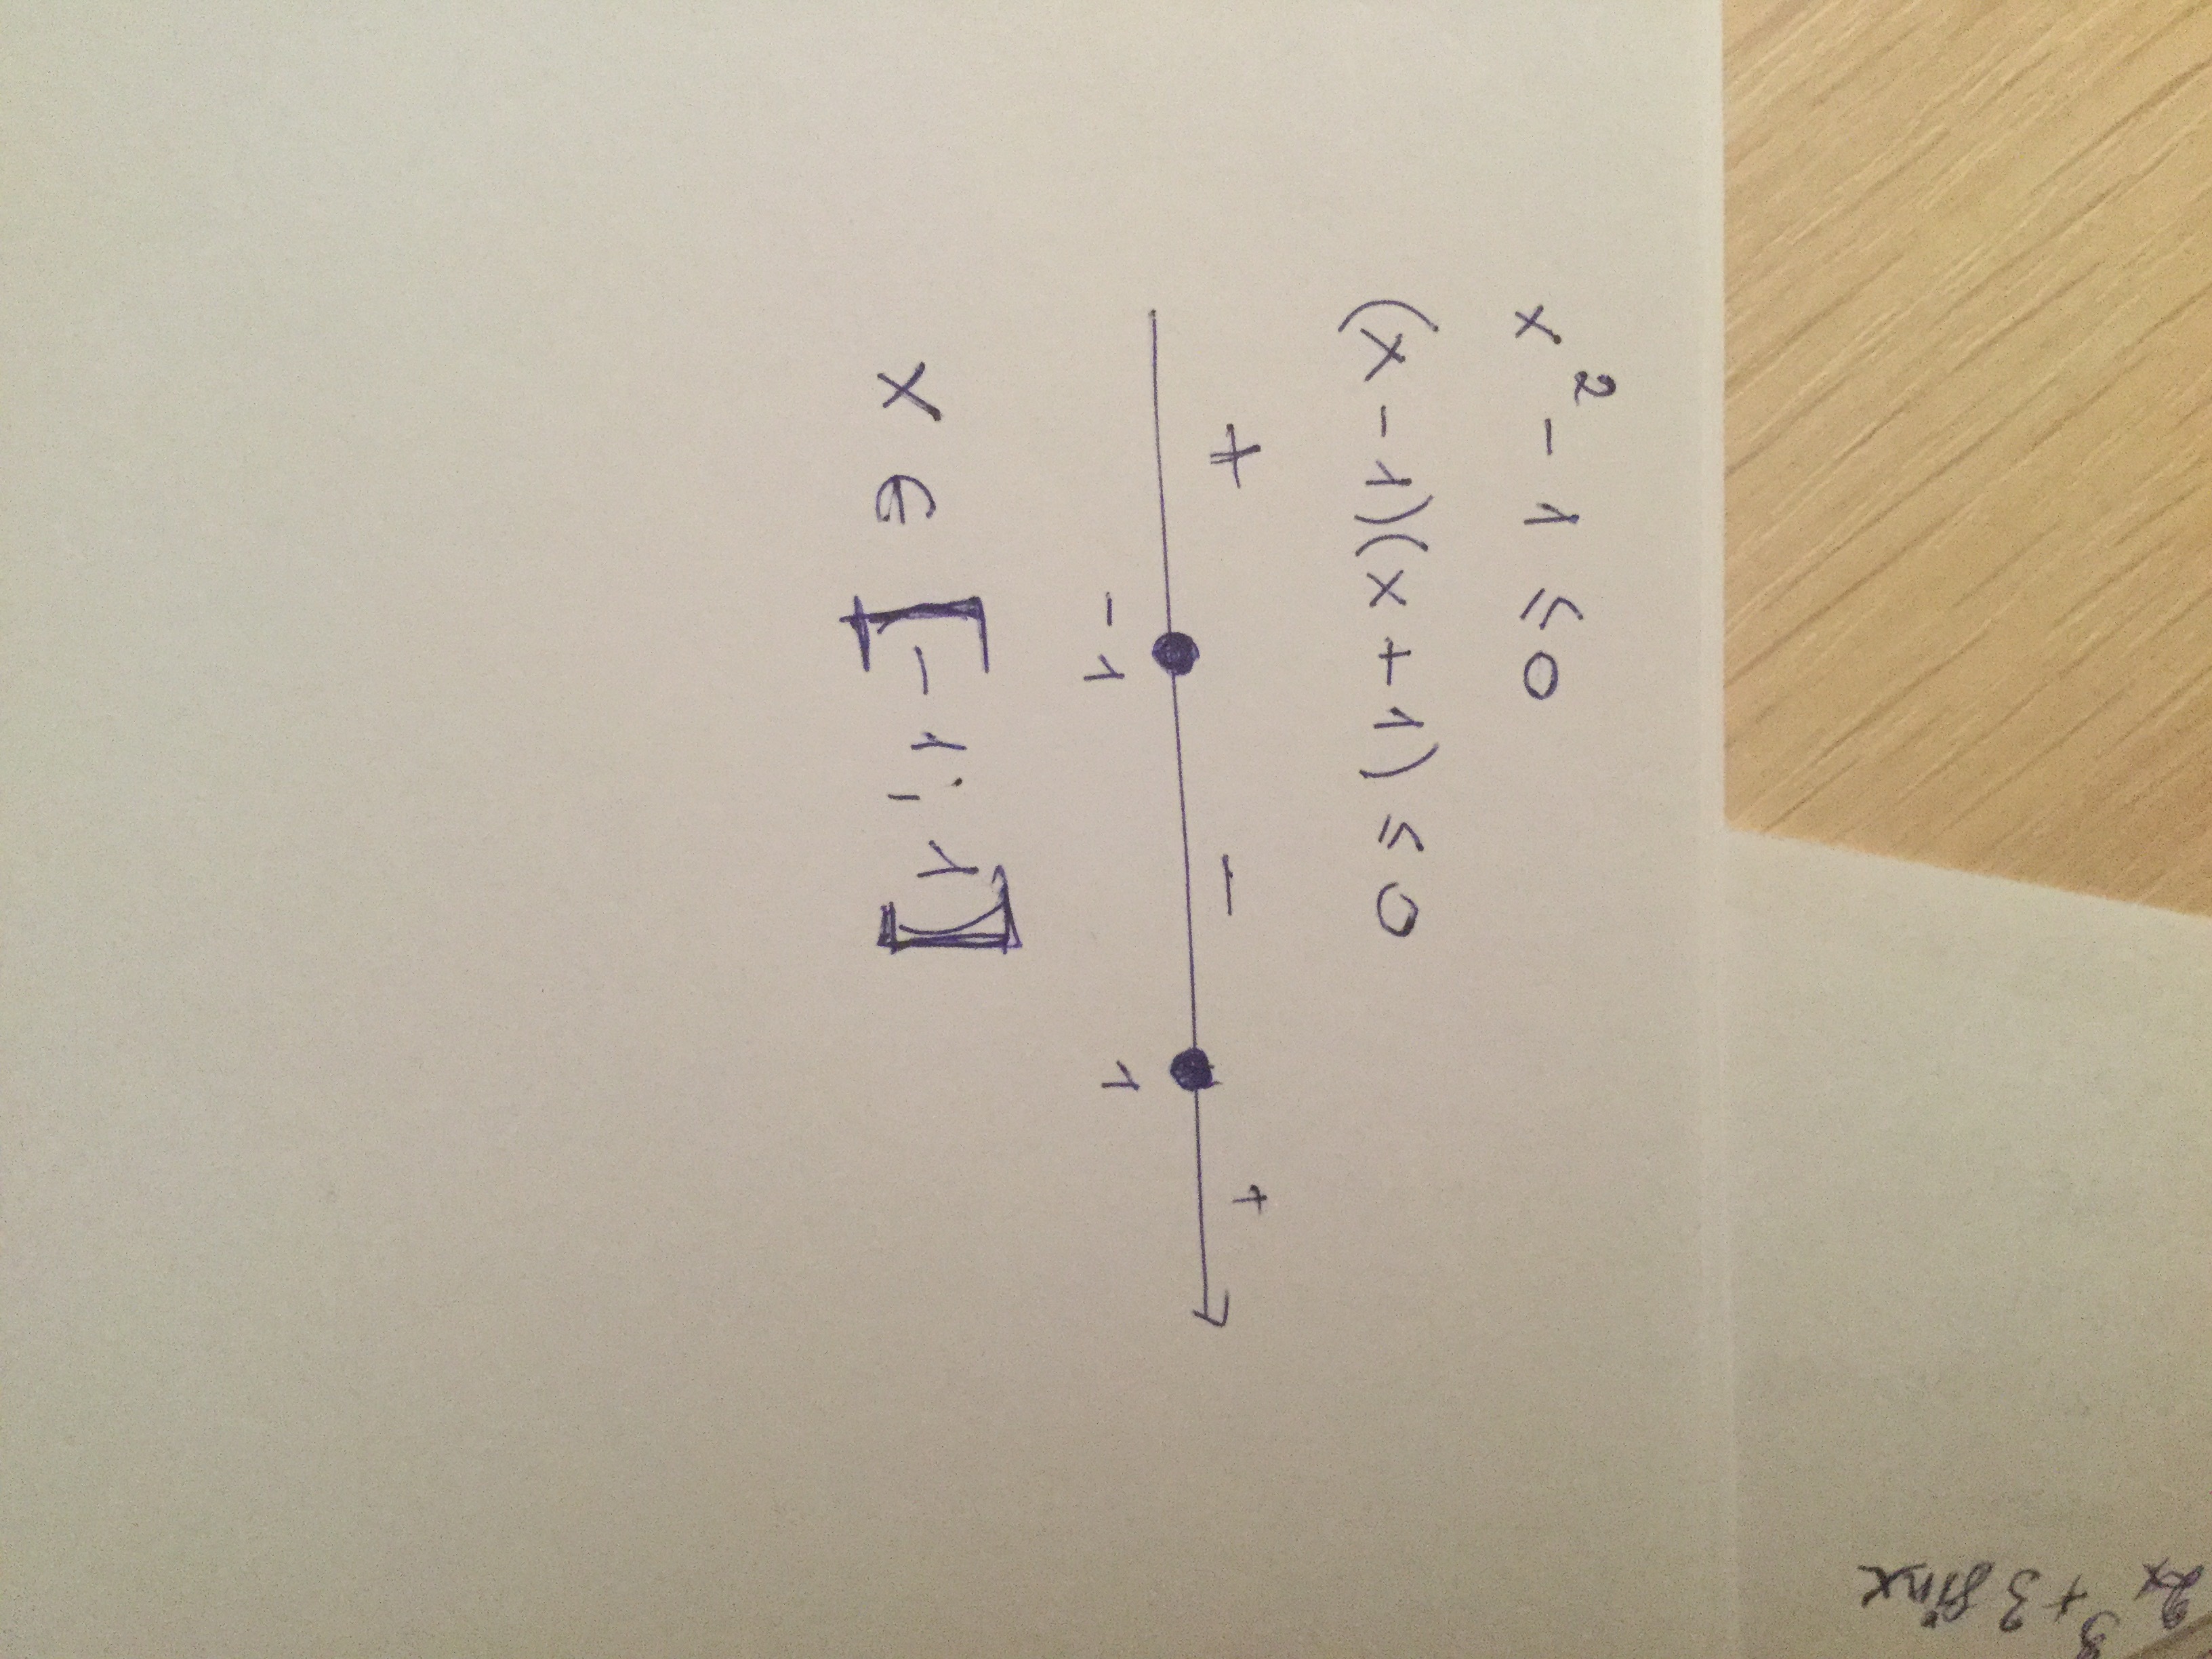 x² - 1 ≤ 0
(x - 1)(x + 1) ≤ 0
+ - +
-1 1
x ∈ [-1; 1]
2x³ + 3 sin x